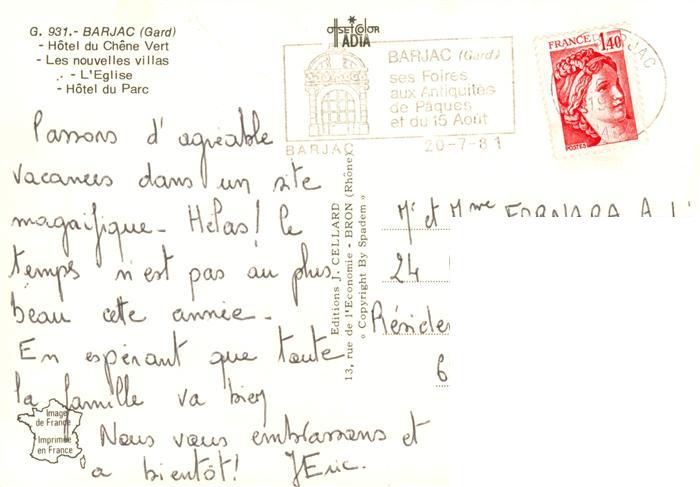 G. 931.- BARJAC (Gard)
- Hôtel du Chêne Vert
- Les nouvelles villas
- L'Eglise
- Hôtel du Parc
OffSETCOLOR
IADIA
BARJAC (Gard)
ses Foires
aux Antiquités
de Pâques
et du 15 Août
BARJAC
20-7-81
FRANCE 1,40
POSTES
BARJAC
Passons d'agréable
vacances dans un site
magnifique. Hélas! le
temps n'est pas au plus
beau cette année.
En espérant que toute
la famille va bien
Nous vous embrassons et
a bientôt! JEric.
Editions J. CELLARD
13, rue de l'Economie - BRON (Rhône)
« Copyright By Spadem »
Mr et Mme FORNARA A
24
Réside
6
Image
de France
Imprimée
en France